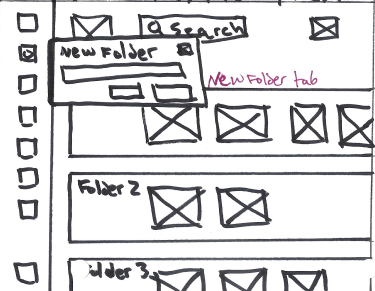 Search
New Folder
New Folder tab
Folder 2
older 3